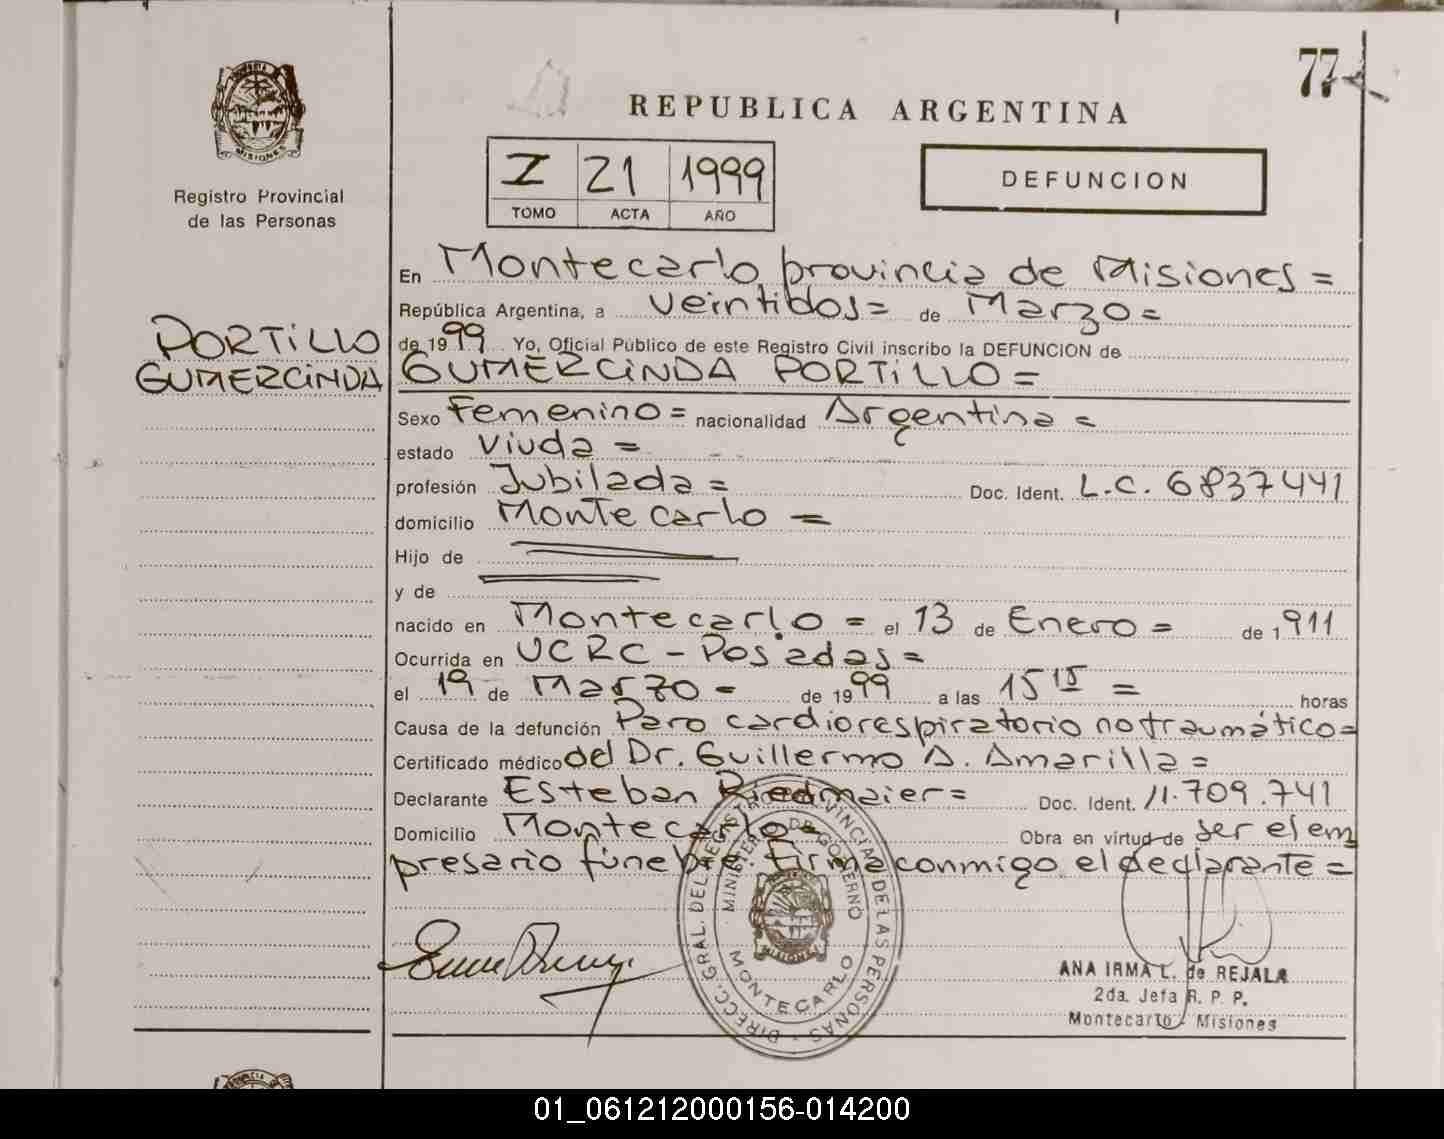 77
REPUBLICA ARGENTINA
MISIONES
I 21 1999
TOMO ACTA AÑO
DEFUNCION
Registro Provincial
de las Personas
PORTILLO
GUMERCINDA
En Montecarlo provincia de Misiones=
República Argentina, a veintidos= de Marzo=
de 1999 Yo, Oficial Público de este Registro Civil inscribo la DEFUNCION de
GUMERCINDA PORTILLO=
Sexo Femenino= nacionalidad Argentina=
estado Viuda=
profesión Jubilada= Doc. Ident. L.C. 6837441
domicilio Montecarlo=
Hijo de
y de
nacido en Montecarlo= el 13 de Enero= de 1911
Ocurrida en UCRC-Posadas=
el 19 de Marzo= de 1999 a las 15 15= horas
Causa de la defunción Paro cardiorespiratorio no traumático=
Certificado médico del Dr. Guillermo A. Amarilla=
Declarante Esteban Riedmaier= Doc. Ident. 11.709.741
Domicilio Montecarlo= Obra en virtud de ser el em
presario fúnebre. Firma conmigo el declarante=
DIRECC. GRAL. DEL REGISTRO PROVINCIAL DE LAS PERSONAS
MINISTERIO DE GOBIERNO
MISIONES
MONTECARLO
ANA IRMA L. de REJALA
2da. Jefa R. P. P.
Montecarlo - Misiones
01_061212000156-014200